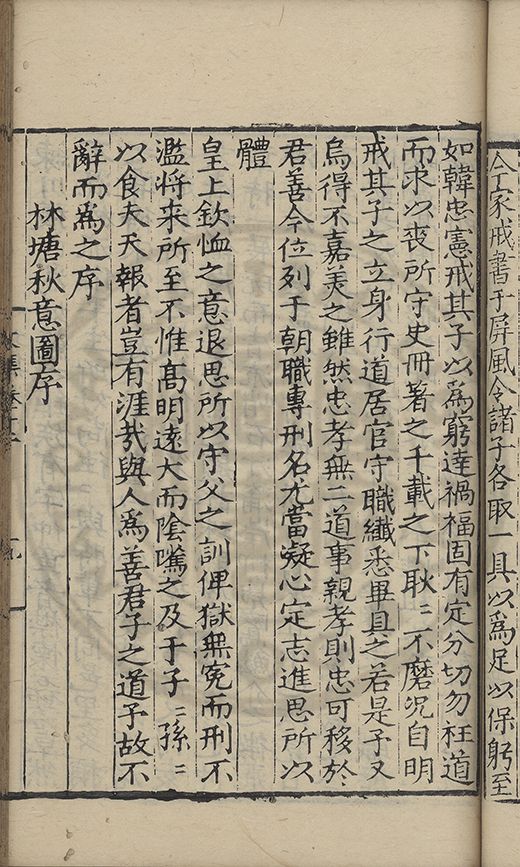 仝家戒書于屏風令諸子各取一具以為足以保躬至
如韓忠憲戒其子以為窮達禍福固有定分切勿枉道
而求以喪所守史冊著之千載之下耿〻不磨况自明
戒其子之立身行道居官守職纖悉畢具之若是子又
烏得不嘉美之雖然忠孝無二道事親孝則忠可移於
君善今位列于朝職專刑名尤當凝心定志進思所以
體
皇上欽恤之意退思所以守父之訓俾獄無冤而刑不
濫將来所至不惟髙明遠大而陰騭之及于子〻孫〻
以食夫天報者豈有涯㢤與人為善君子之道予故不
辭而為之序
林塘秋意圖序